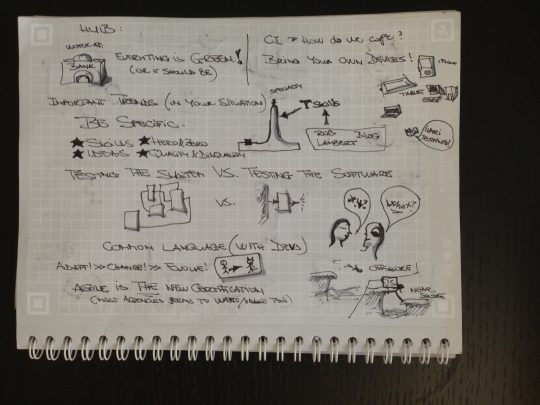 HUIB:
WORK AT
BANK
EVERYTHING IS GREEN!
(OR IT SHOULD BE)
CI → HOW DO WE COPE?
BRING YOUR OWN DEVICES!
TABLET
IMPORTANT TRENDS (IN YOUR SITUATION)
BE SPECIFIC.
★ SKILLS ★ HERO & ZERO
★ IDEAS ★ QUALITY &
SPECIALTY
T SKILLS
ROB LAMBERT BLOG
TESTING THE SYSTEM VS. TESTING THE SOFTWARE
VS.
WHAX!?
COMMON LANGUAGE (WITH DEVS)
ADAPT! >> CHANGE! >> EVOLVE!
AGILE IS THE NEW CERTIFICATION
(MOST AGENCIES SEEMS TO WANT
NEAR
SHORE